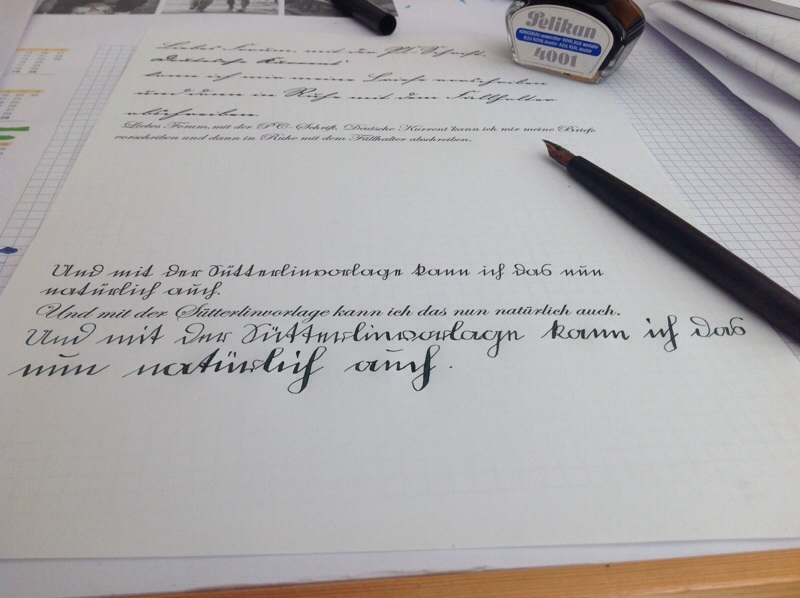 Pelikan
4001
Liebes Forum, mit der PC-Schrift,
Deutsche Kurrent
kann ich mir meine Briefe vorschreiben
und dann in Ruhe mit dem Füllhalter
abschreiben.
Liebes Forum, mit der PC-Schrift, Deutsche Kurrent kann ich mir meine Briefe
vorschreiben und dann in Ruhe mit dem Füllhalter abschreiben.
Und mit der Sütterlinvorlage kann ich das nun
natürlich auch.
Und mit der Sütterlinvorlage kann ich das nun natürlich auch.
Und mit der Sütterlinvorlage kann ich das
nun natürlich auch.